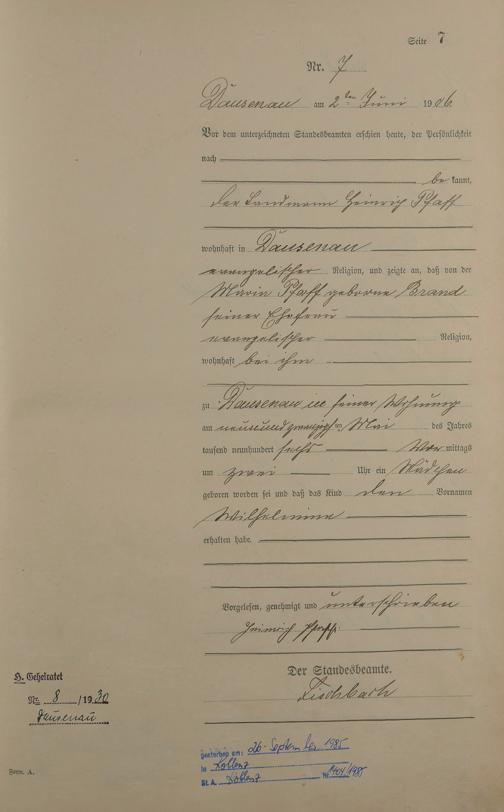 Seite 7
Nr. 7
Dausenau am 2ten Juni 1906
Vor dem unterzeichneten Standesbeamten erschien heute, der Persönlichkeit
nach
be kannt,
der Landmann Heinrich Pfaff
wohnhaft in Dausenau
evangelischer Religion, und zeigte an, daß von der
Maria Pfaff geborne Brand
seiner Ehefrau
evangelischer Religion,
wohnhaft bei ihm
zu Dausenau in seiner Wohnung
am neunundzwanzigsten Mai des Jahres
tausend neunhundert sechs Vor mittags
um zwei Uhr ein Mädchen
geboren worden sei und daß das Kind den Vornamen
Wilhelmine
erhalten habe.
Vorgelesen, genehmigt und unterschrieben
Heinrich Pfaff.
Der Standesbeamte.
Fischbach
H. Geheiratet
Nr. 8 /1930
Dausenau
gestorben am: 26. September 1985
in Koblenz
St. A. Koblenz Nr. /1985
Form. A.